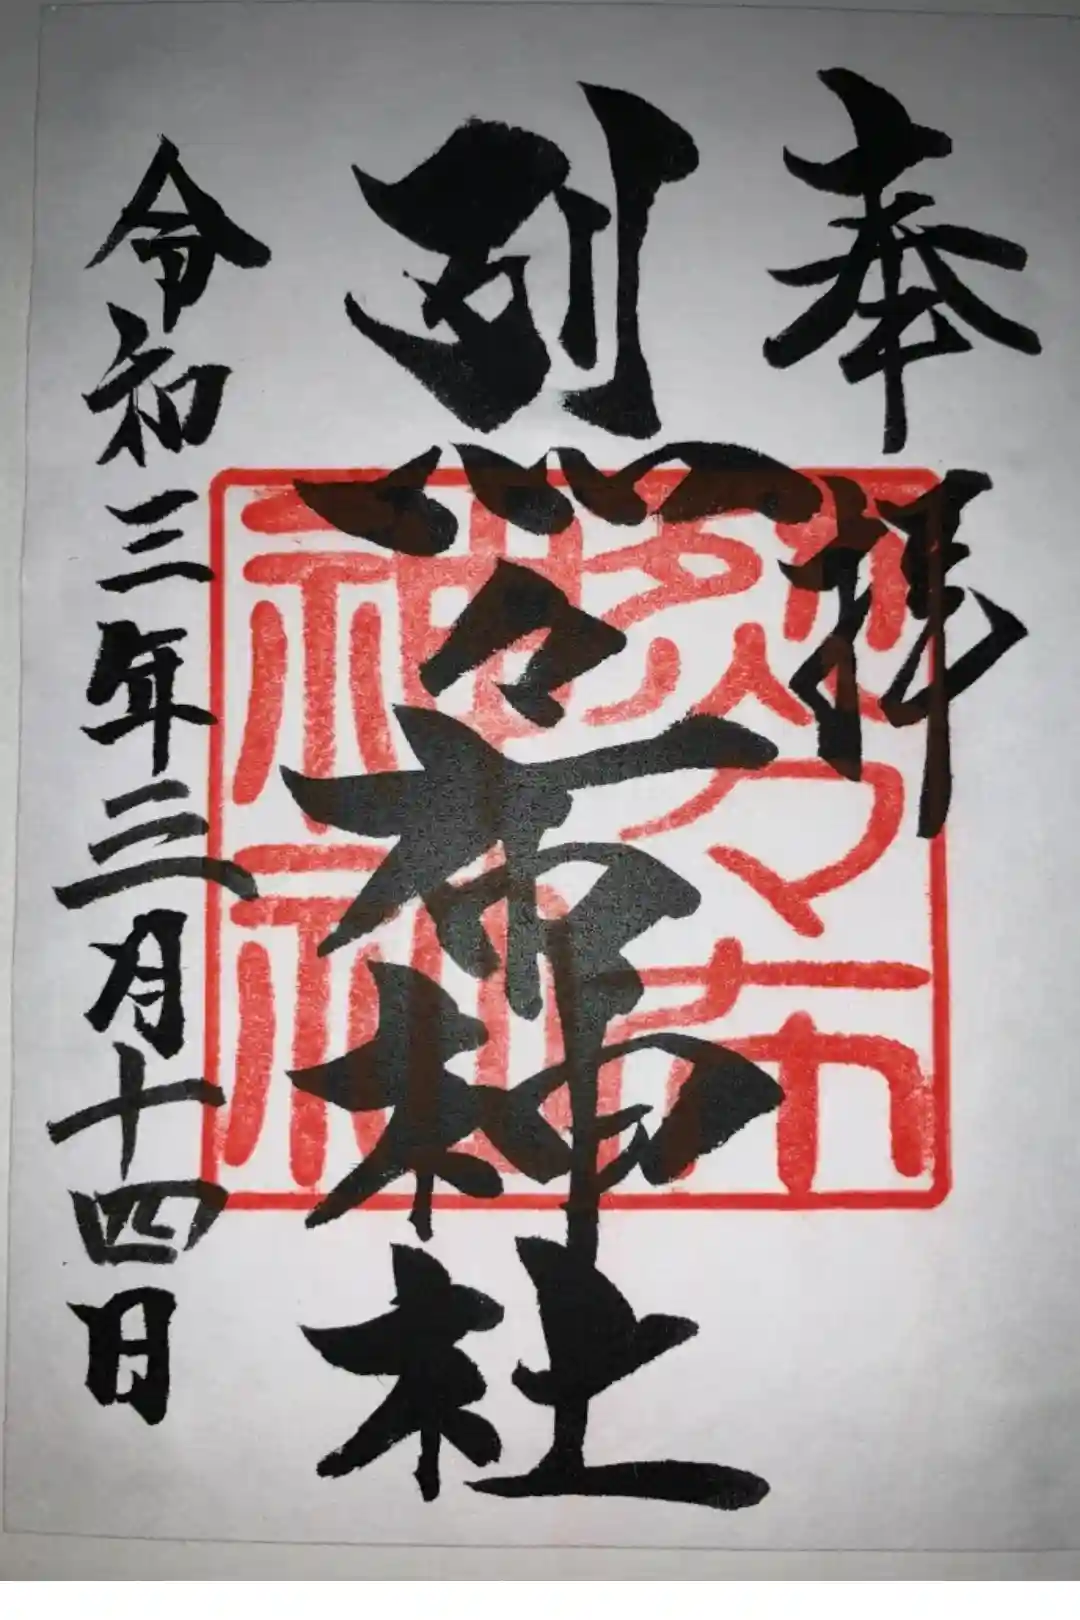 奉拝
烈々布神社
令和三年三月十四日
烈々布
神社